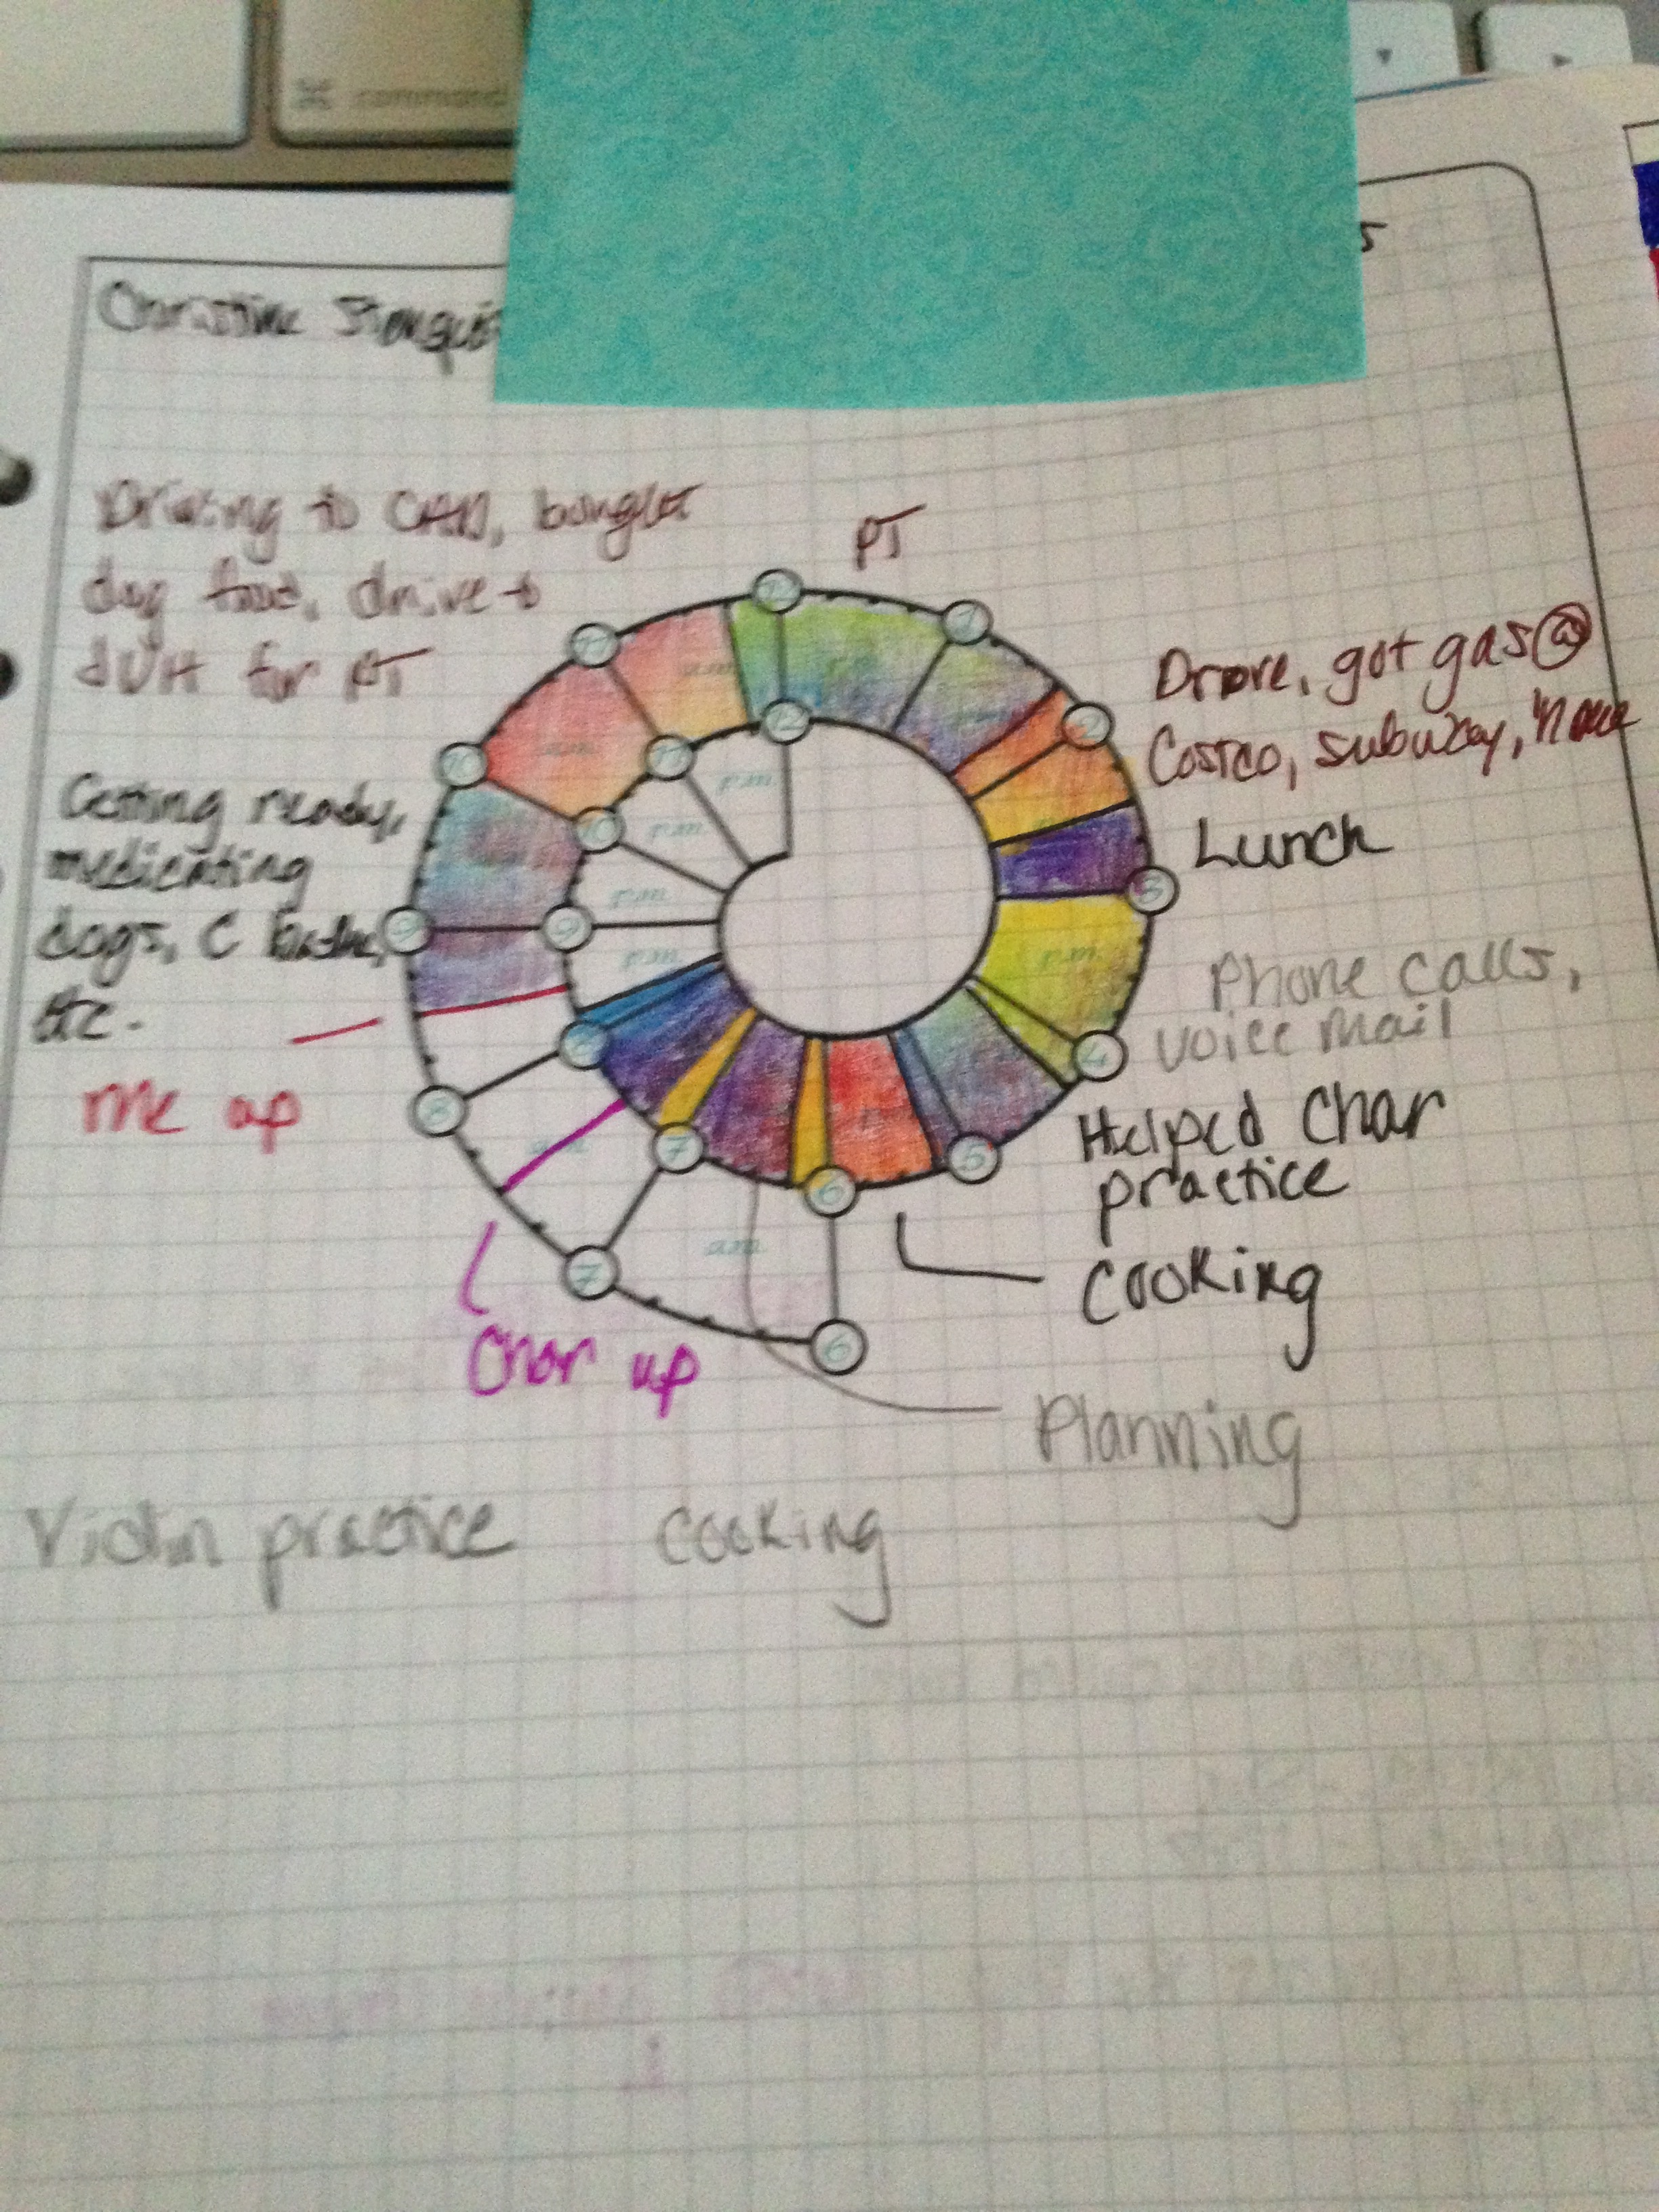 command
Christine
Driving to bought
dog food, drive to
for PT
PT
Drove, got gas @
Costco, subway, home
Lunch
Getting ready,
medicating
dogs, C
etc.
Phone calls,
voice mail
me up
Helped Char
practice
Cooking
Char up
Planning
Violin practice Cooking
12
1
2
3
4
5
6
7
8
9
10
11
12
11
10
9
8
7
6
am
am
am
p.m.
p.m.
p.m.
p.m.
p.m.